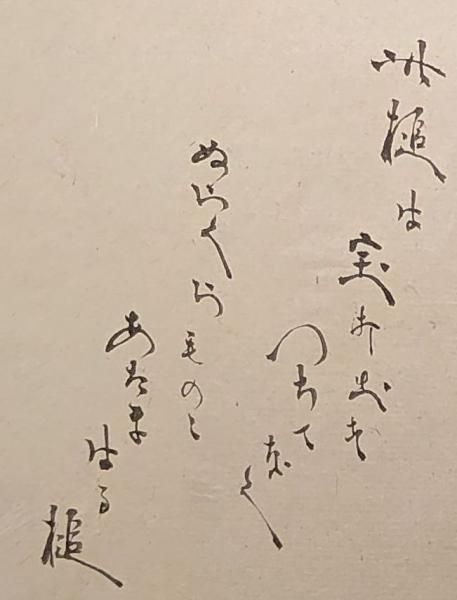 此槌は
宝打出す
つちて
なく
ぬらくら
ものゝ
あたま
はる
槌